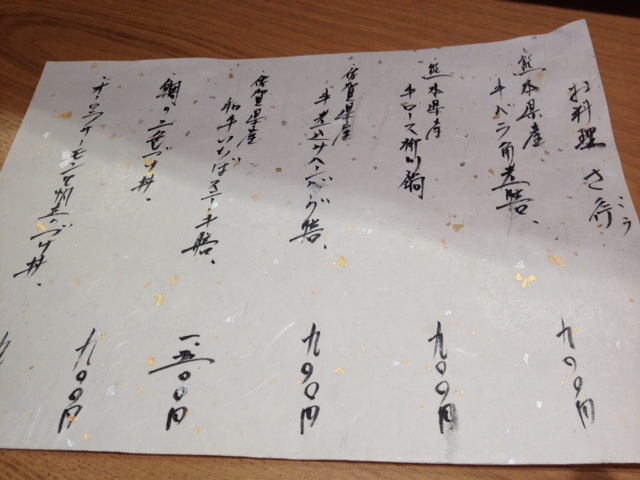 お料理
熊本県産
牛バラ角煮膳、
九〇〇円
熊本県産
牛ロース柳川鍋
九〇〇円
佐賀県産
牛煮込みハンバーグ膳、
九〇〇円
佐賀県産
和牛いちぼステーキ膳、
一、五〇〇円
鯛の二色づけ丼、
オーロラサーモンと
づけ丼、
九〇〇円